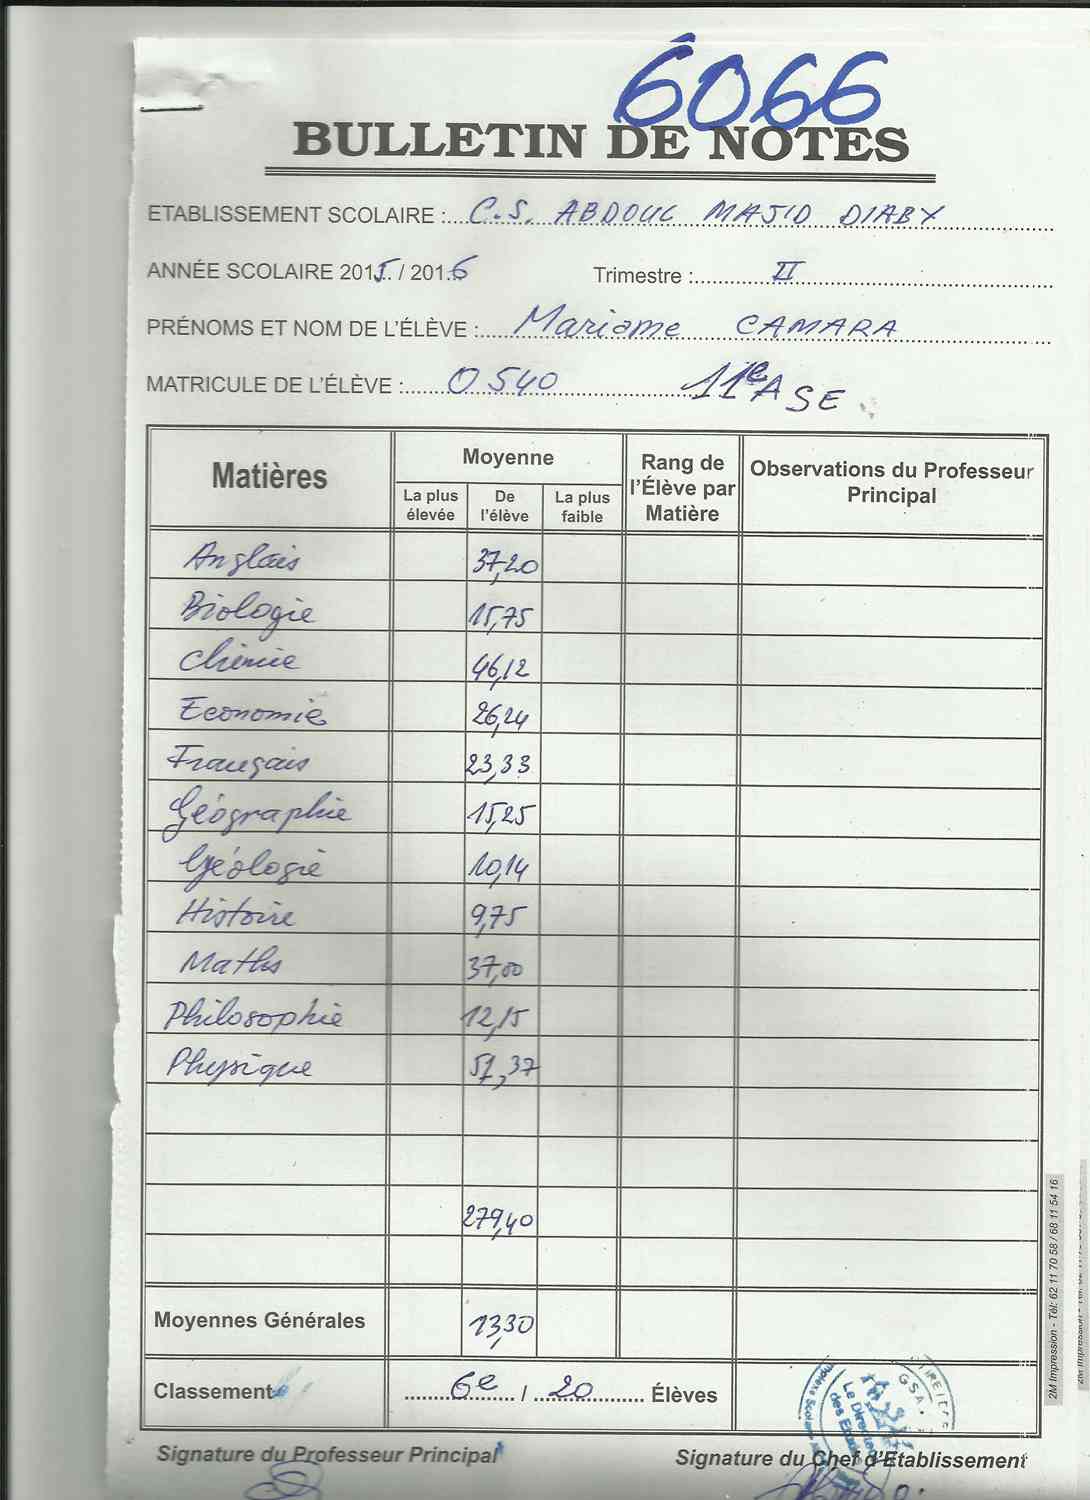 6066
BULLETIN DE NOTES
ETABLISSEMENT SCOLAIRE : C.S. ABDOUL MAJID DIABY
ANNÉE SCOLAIRE 2015 / 2016 Trimestre : II
PRÉNOMS ET NOM DE L'ÉLÈVE : Mariame CAMARA
MATRICULE DE L'ÉLÈVE : 0540 11e A SE
Matières Moyenne Rang de l'Élève par Matière Observations du Professeur Principal
La plus élevée De l'élève La plus faible
Anglais 37,20
Biologie 15,75
Chimie 46,12
Economie 26,24
Français 23,33
Géographie 15,25
Géologie 10,14
Histoire 9,75
Maths 37,00
Philosophie 12,15
Physique 51,37
279,40
Moyennes Générales 13,30
Classement 6e / 20 Élèves
Le Directeur
des Etudes
GSA
Signature du Professeur Principal Signature du Chef d'Etablissement
2M Impression - Tél: 62 11 70 58 / 68 11 54 16